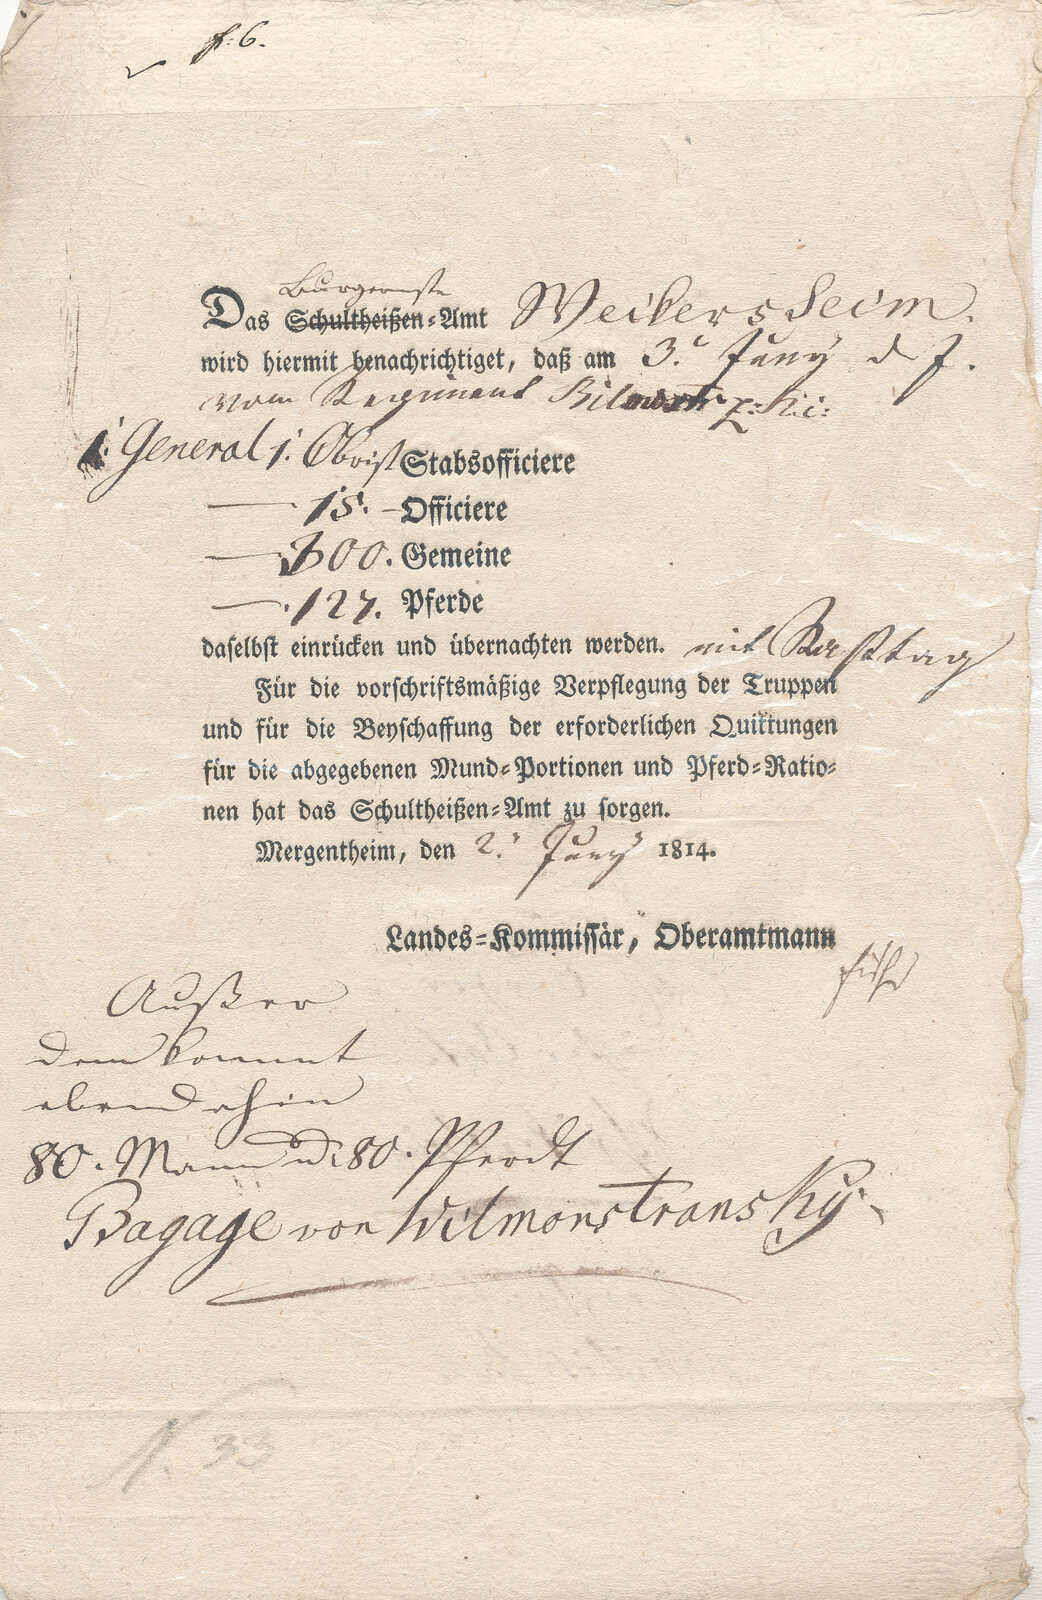 f: 6.
Burgermstr
Das Schultheißen-Amt Weikersheim.
wird hiermit benachrichtiget, daß am 3.t Juny d. J.
vom Regiment
1. General 1. Obrist Stabsofficiere
— 15. — Officiere
— 300. Gemeine
— 127. Pferde
daselbst einrücken und übernachten werden. mit Rasttag
Für die vorschriftsmäßige Verpflegung der Truppen
und für die Beyschaffung der erforderlichen Quittungen
für die abgegebenen Mund-Portionen und Pferd-Ratio-
nen hat das Schultheißen-Amt zu sorgen.
Mergentheim, den 2.n Juny 1814.
Landes-Kommissär, Oberamtmann
Außer
dem kommt
ebendahin
80. Mann u. 80. Pferdt
Bagage von Wilmonstransky.
N. 33